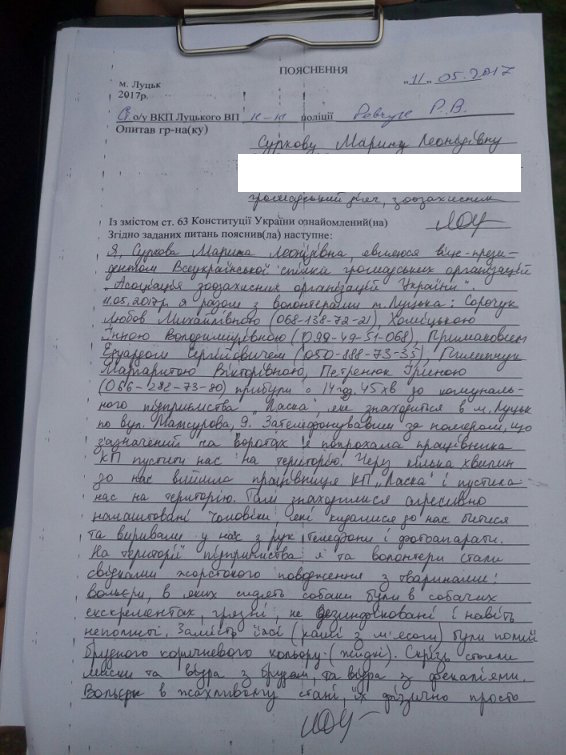 ПОЯСНЕННЯ
„11„ 05.2017
м. Луцьк
2017р.
о/у ВКП Луцького ВП поліції Р. В.
Опитав гр-на(ку)
Суркову Марину Леонідівну
громадський діяч, зоозахисник
Із змістом ст. 63 Конституції України ознайомлений(на)
Згідно заданих питань пояснив(ла) наступне:
Я, Суркова Марина Леонідівна, являюся віце-прези-
дентом Всеукраїнської спілки громадських організацій
„Асоціація зоозахисних організацій України".
11.05.2017р. я разом з волонтерами м. Луцька: Сорочук
Любов Михайлівною (068-138-72-21), Хомицькою
Інною Володимирівною (099-49-51-068), Примаковим
Едуардом Сергійовичем (050-188-73-35), Пилипчук
Маргаритою Вікторівною, Петренюк Іриною
(066-282-73-80) прибули о 14 год. 45 хв до комуналь-
ного підприємства „Ласка", яке знаходиться в м. Луцьк
по вул. Мамсурова, 9. Зателефонувавши за номером, що
зазначений на воротах я попрохала працівника
КП пустити нас на територію. Через кілька хвилин
до нас вийшла працівниця КП „Ласка" і пустила
нас на територію. Там знаходилися агресивно
налаштовані чоловіки, які кидалися до нас битися
та виривали у нас з рук телефони і фотоапарати.
На території підприємства я та волонтери стали
свідками жорстокого поводження з тваринами:
вольєри, в яких сидять собаки були в собачих
екскрементах, грязні, не дезинфіковані і навіть
неполиті. Замість їжі (каші з м'ясом) були помиї
брудного коричневого кольору (жидкі). Скрізь стояли
миски та відра з брудом, та відра з фекаліями.
Вольєри в жахливому стані, їх фізично просто